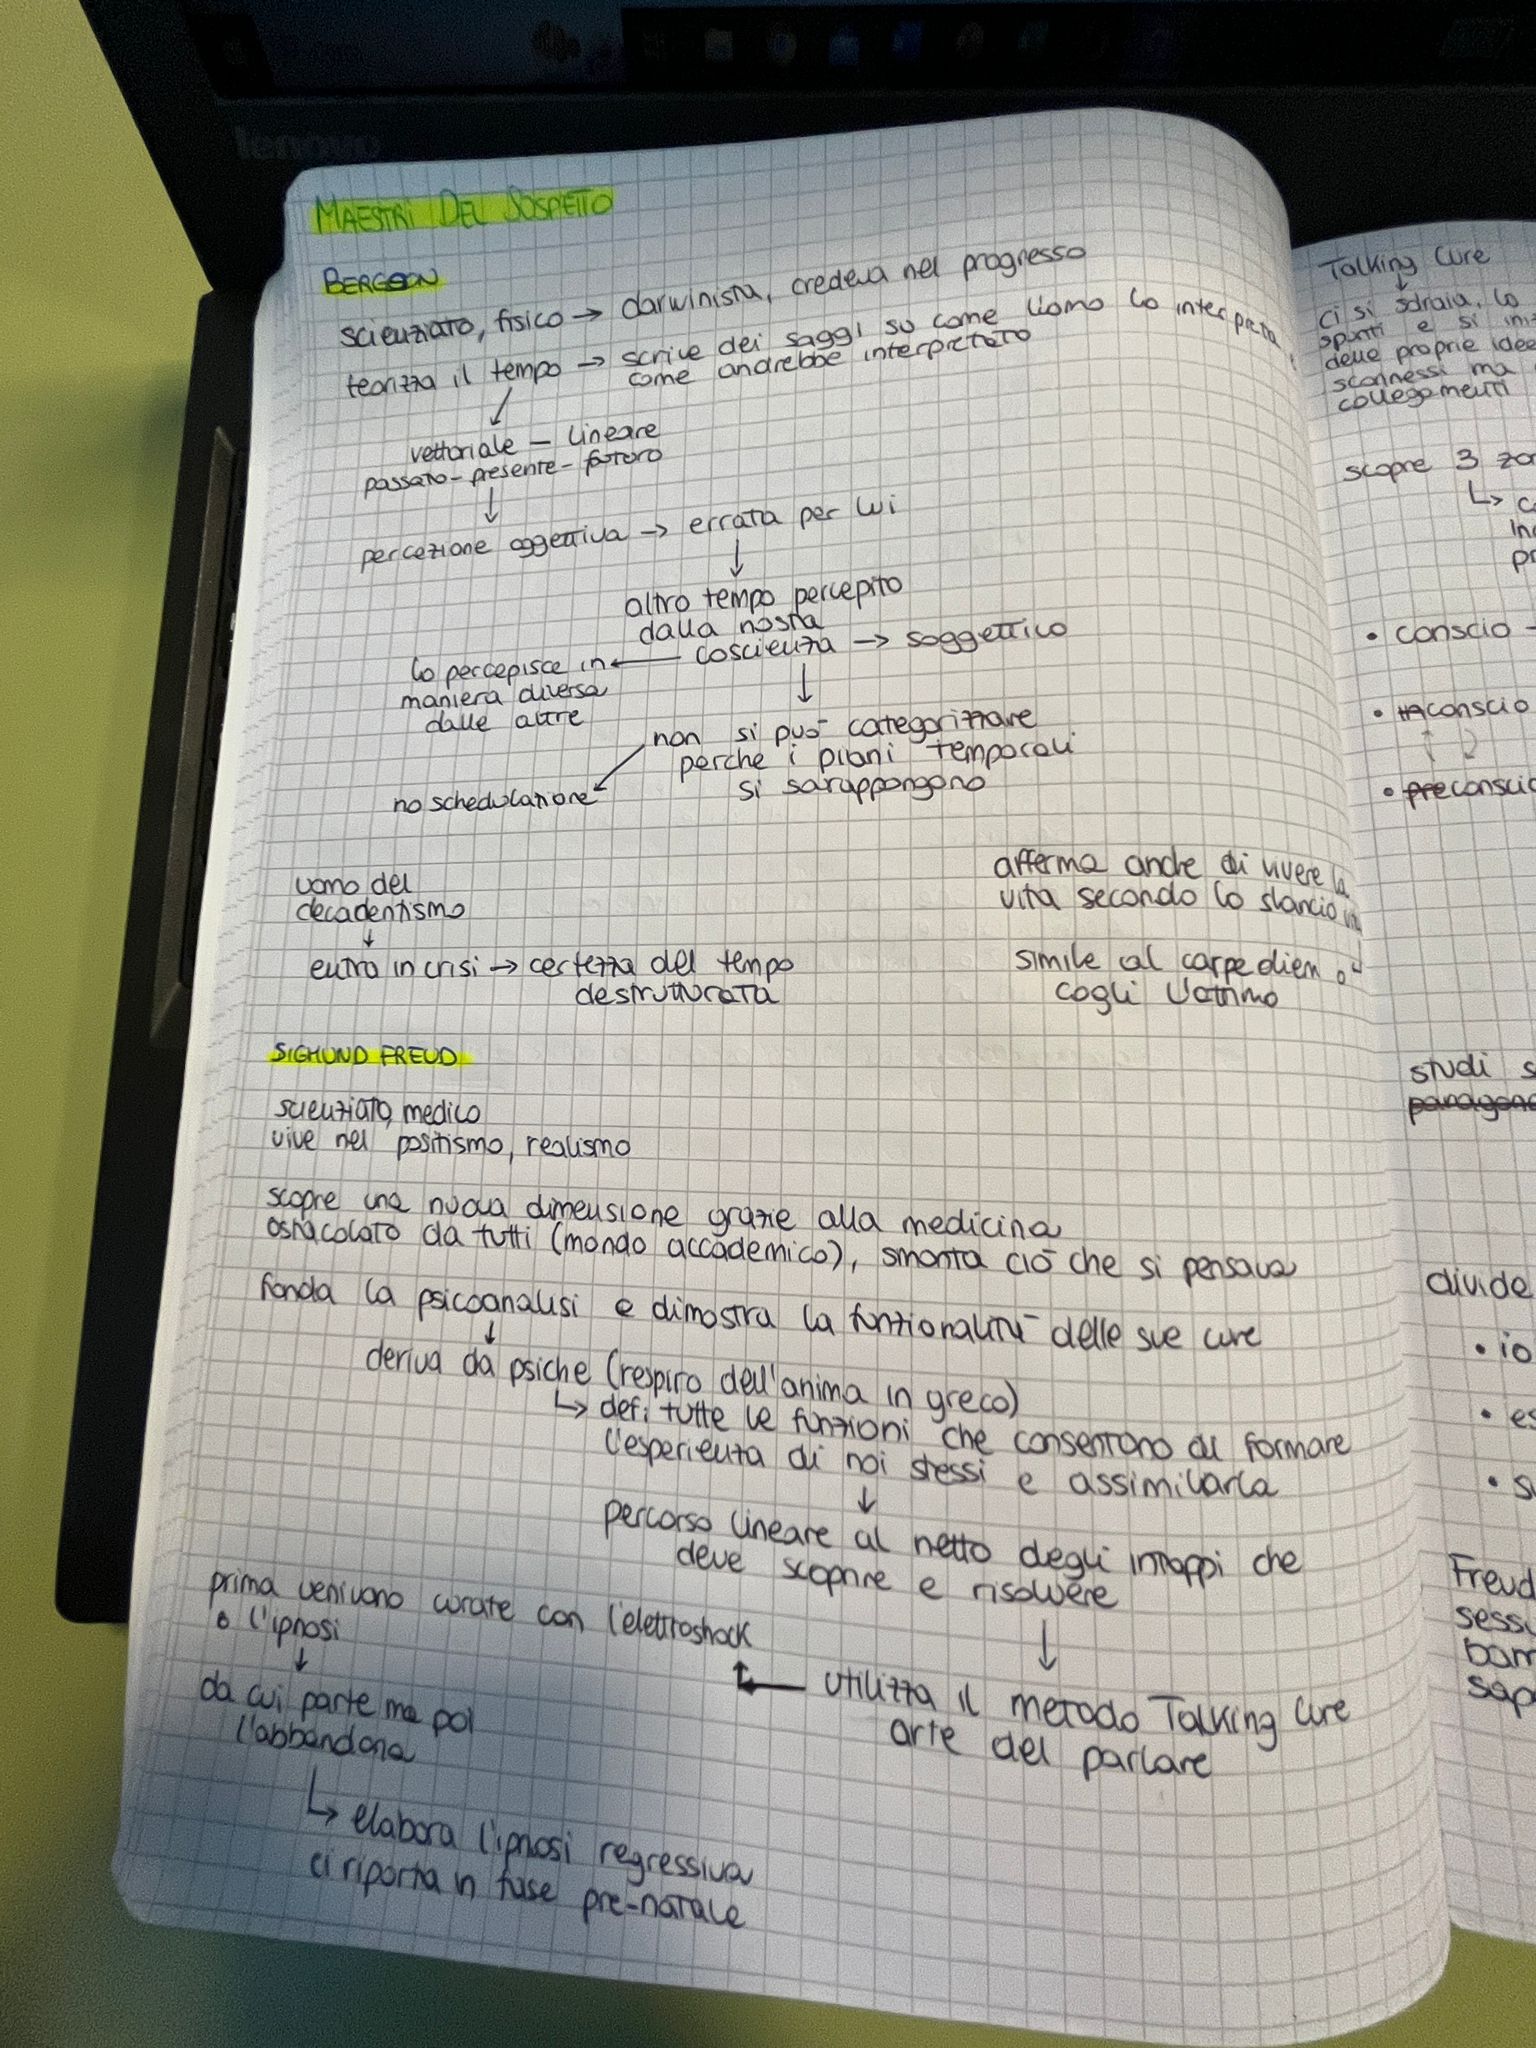 lenovo
MAESTRI DEL SOSPETTO
BERGSON
scienziato, fisico → darwinista, credeva nel progresso
teorizza il tempo → scrive dei saggi su come l'uomo lo interpreta
come andrebbe interpretato
vettoriale - lineare
passato - presente - futuro
percezione oggettiva → errata per lui
altro tempo percepito
dalla nostra
coscienza → soggettivo
lo percepisce in
maniera diversa
dalle altre
non si può categorizzare
perche i piani temporali
si sovrappongono
no schedulazione
uomo del
decadentismo
entra in crisi → certezza del tempo
destrutturata
afferma anche di vivere la
vita secondo lo slancio
simile al carpediem o
cogli l'attimo
SIGMUND FREUD
scienziato, medico
vive nel positismo, realismo
scopre una nuova dimensione grazie alla medicina
ostacolato da tutti (mondo accademico), smonta ciò che si pensava
fonda la psicoanalisi e dimostra la funzionalità delle sue cure
deriva da psiche (respiro dell'anima in greco)
↳ def: tutte le funzioni che consentono di formare
l'esperienza di noi stessi e assimilarla
percorso lineare al netto degli intoppi che
deve scoprire e risolvere
utilizza il metodo Talking Cure
arte del parlare
prima venivano curate con l'elettroshock
o l'ipnosi
da cui parte ma poi
l'abbandona
↳ elabora l'ipnosi regressiva
ci riporta in fase pre-natale
Talking Cure
ci si sdraia, lo
spunti e si iniz
delle proprie idee
sconnessi ma
collegamenti
scopre 3 zon
• conscio
• inconscio
• preconscio
studi s
divide
• io
• es
• su
Freud
sessu
bam
sap